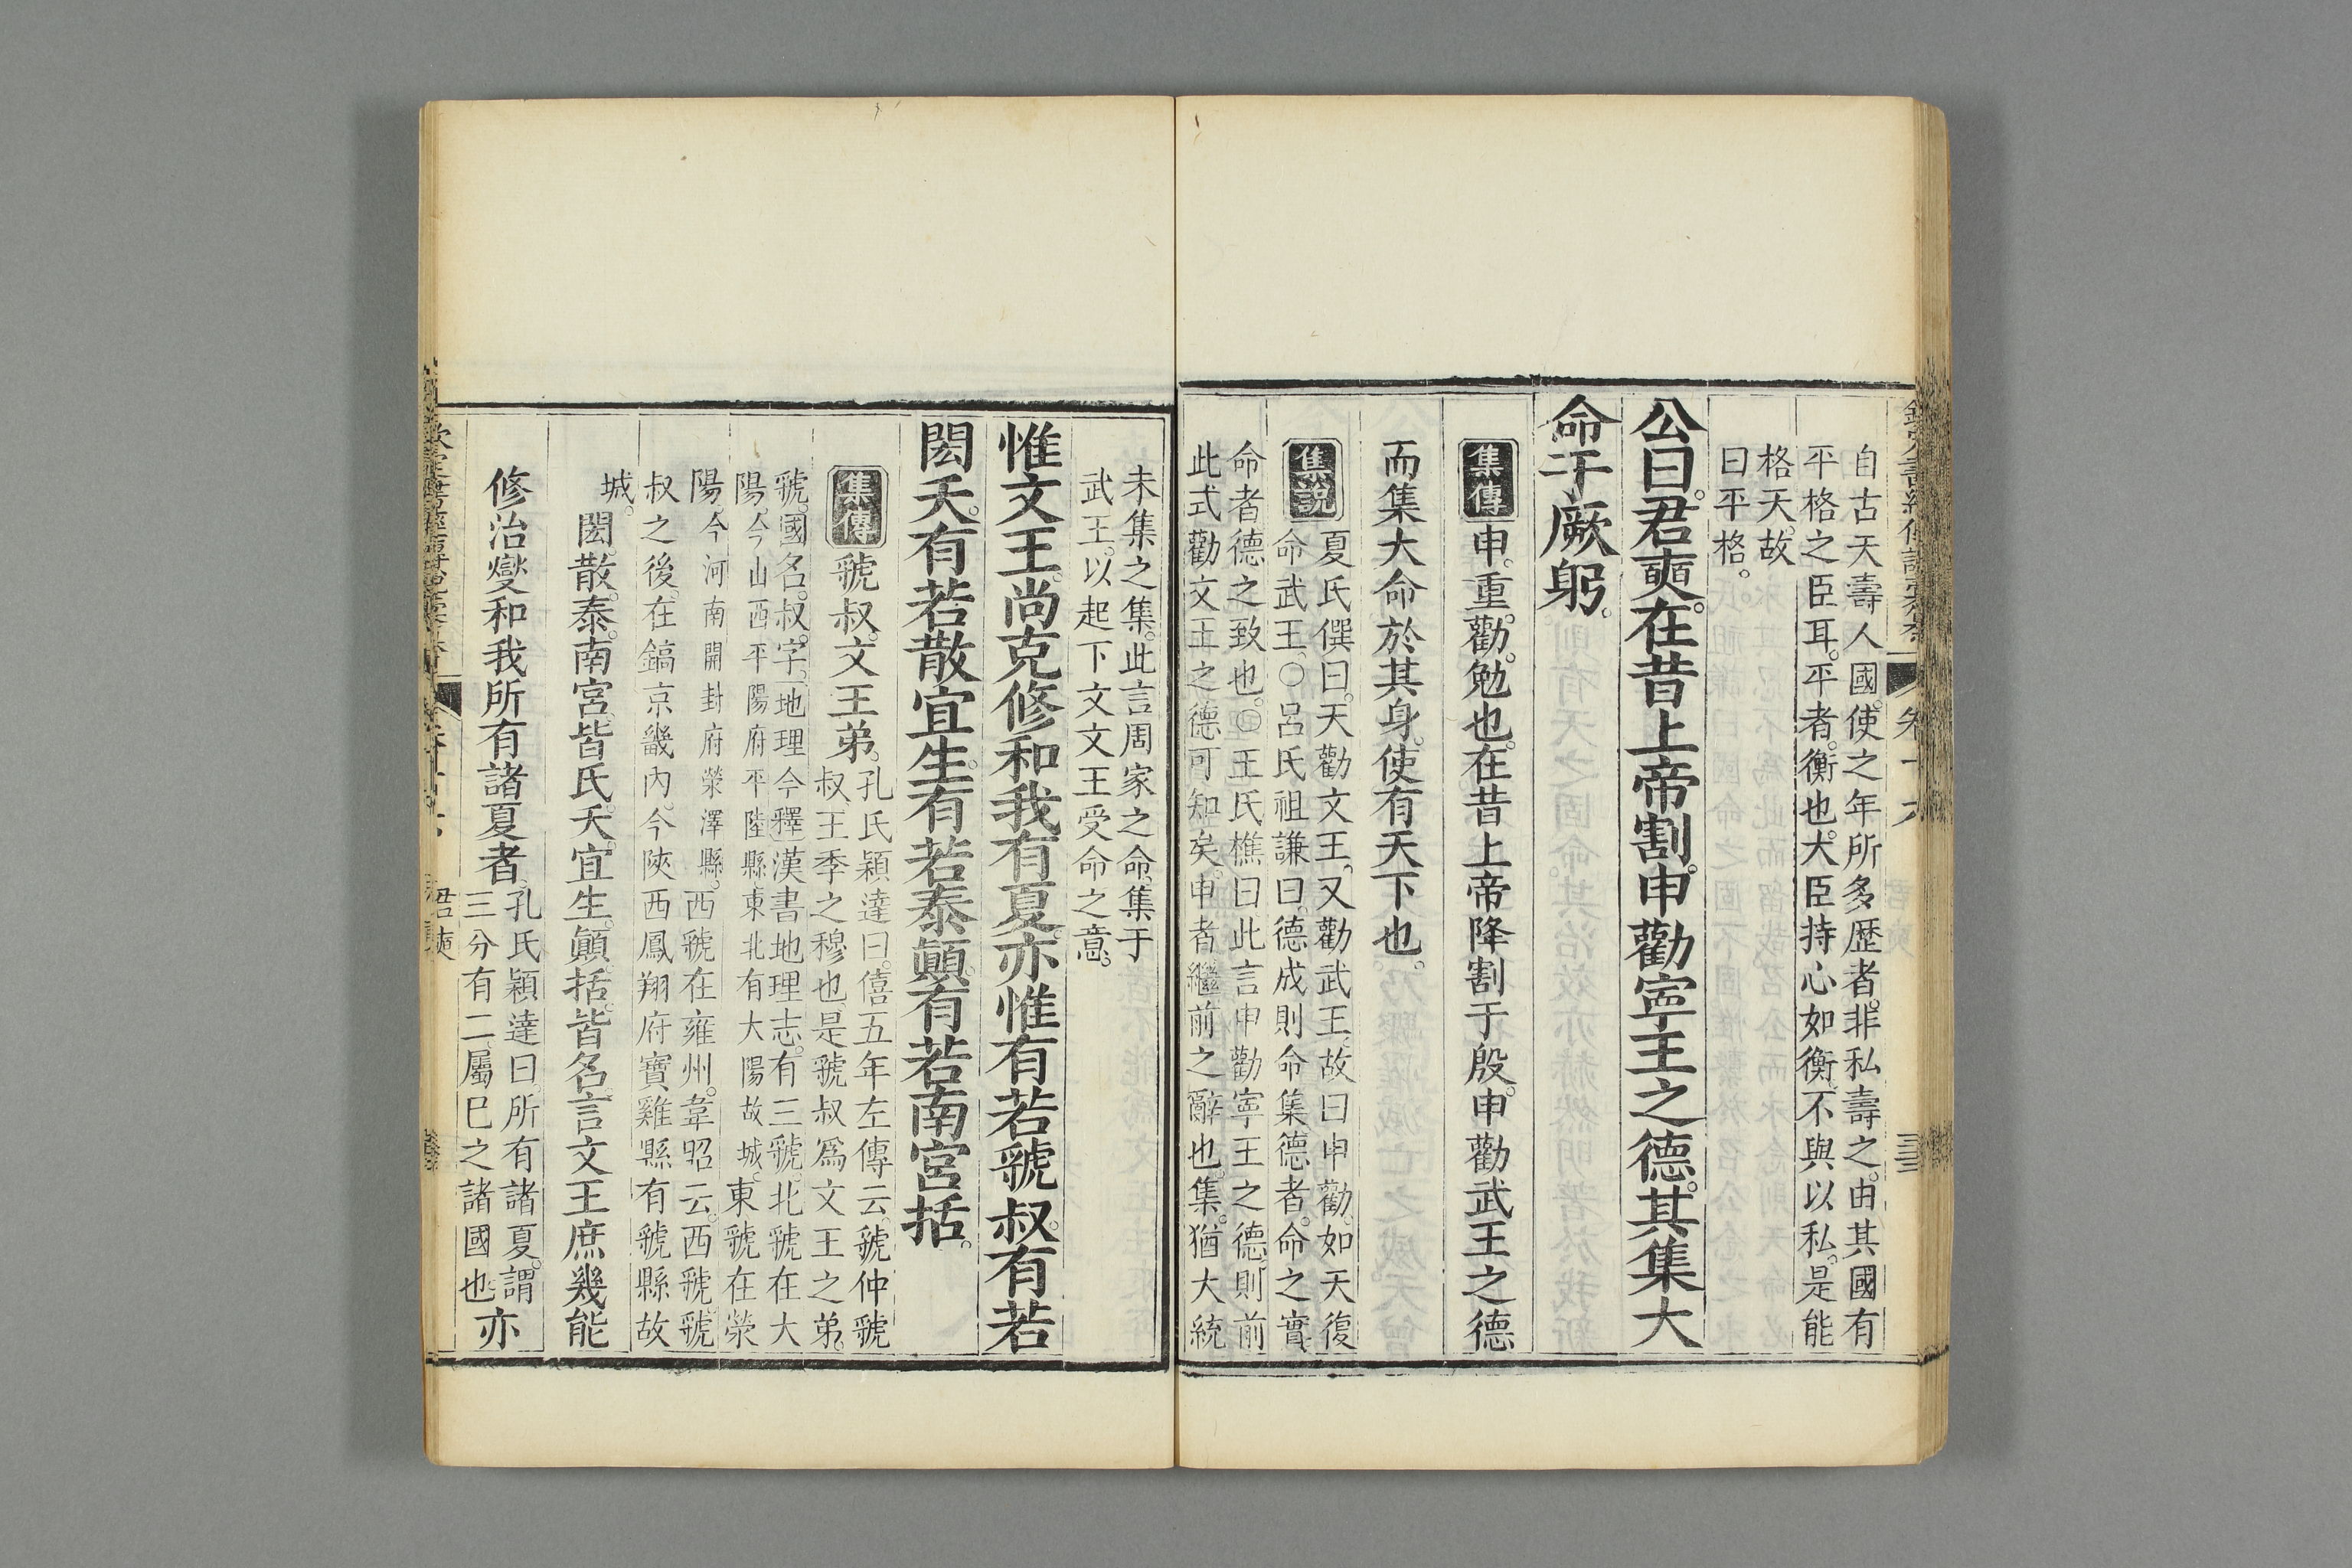 自古天壽人國。使之年所多歷者。非私壽之。由其國有
平格之臣耳。平者。衡也。大臣持心如衡。不與以私。是能
格天。故
曰平格。
公曰。君奭。在昔上帝割。申勸寧王之德。其集大
命于厥躬。
集傳 申。重。勸。勉也。在昔上帝降割于殷。申勸武王之德
而集大命於其身。使有天下也。
集說 夏氏僎曰。天勸文王。又勸武王。故曰申勸。如天復
命武王。○呂氏祖謙曰。德成則命集。德者。命之實。
命者。德之致也。○王氏樵曰。此言申勸寧王之德。則前
此式勸文王之德可知矣。申者。繼前之辭也。集。猶大統
未集之集。此言周家之命。集于
武王。以起下文文王受命之意。
惟文王。尚克修和我有夏。亦惟有若虢叔。有若
閎夭。有若散宜生。有若泰顛。有若南宮括。
集傳 虢叔。文王弟。孔氏穎達曰。僖五年左傳云。虢仲虢
叔。王季之穆也。是虢叔爲文王之弟。
虢。國名。叔。字。地理今釋。漢書地理志。有三虢。北虢在大
陽。今山西平陽府平陸縣東北有大陽故城。東虢在滎
陽。今河南開封府滎澤縣。西虢在雍州。韋昭云。西虢。虢
叔之後。在鎬京畿內。今陝西鳳翔府寶雞縣有虢縣故
城。
閎。散。泰。南宮。皆氏。夭。宜生。顛。括。皆名。言文王庶幾能
修治燮和我所有諸夏者。孔氏穎達曰。所有諸夏。謂
三分有二。屬己之諸國也。亦
卷十六
君奭